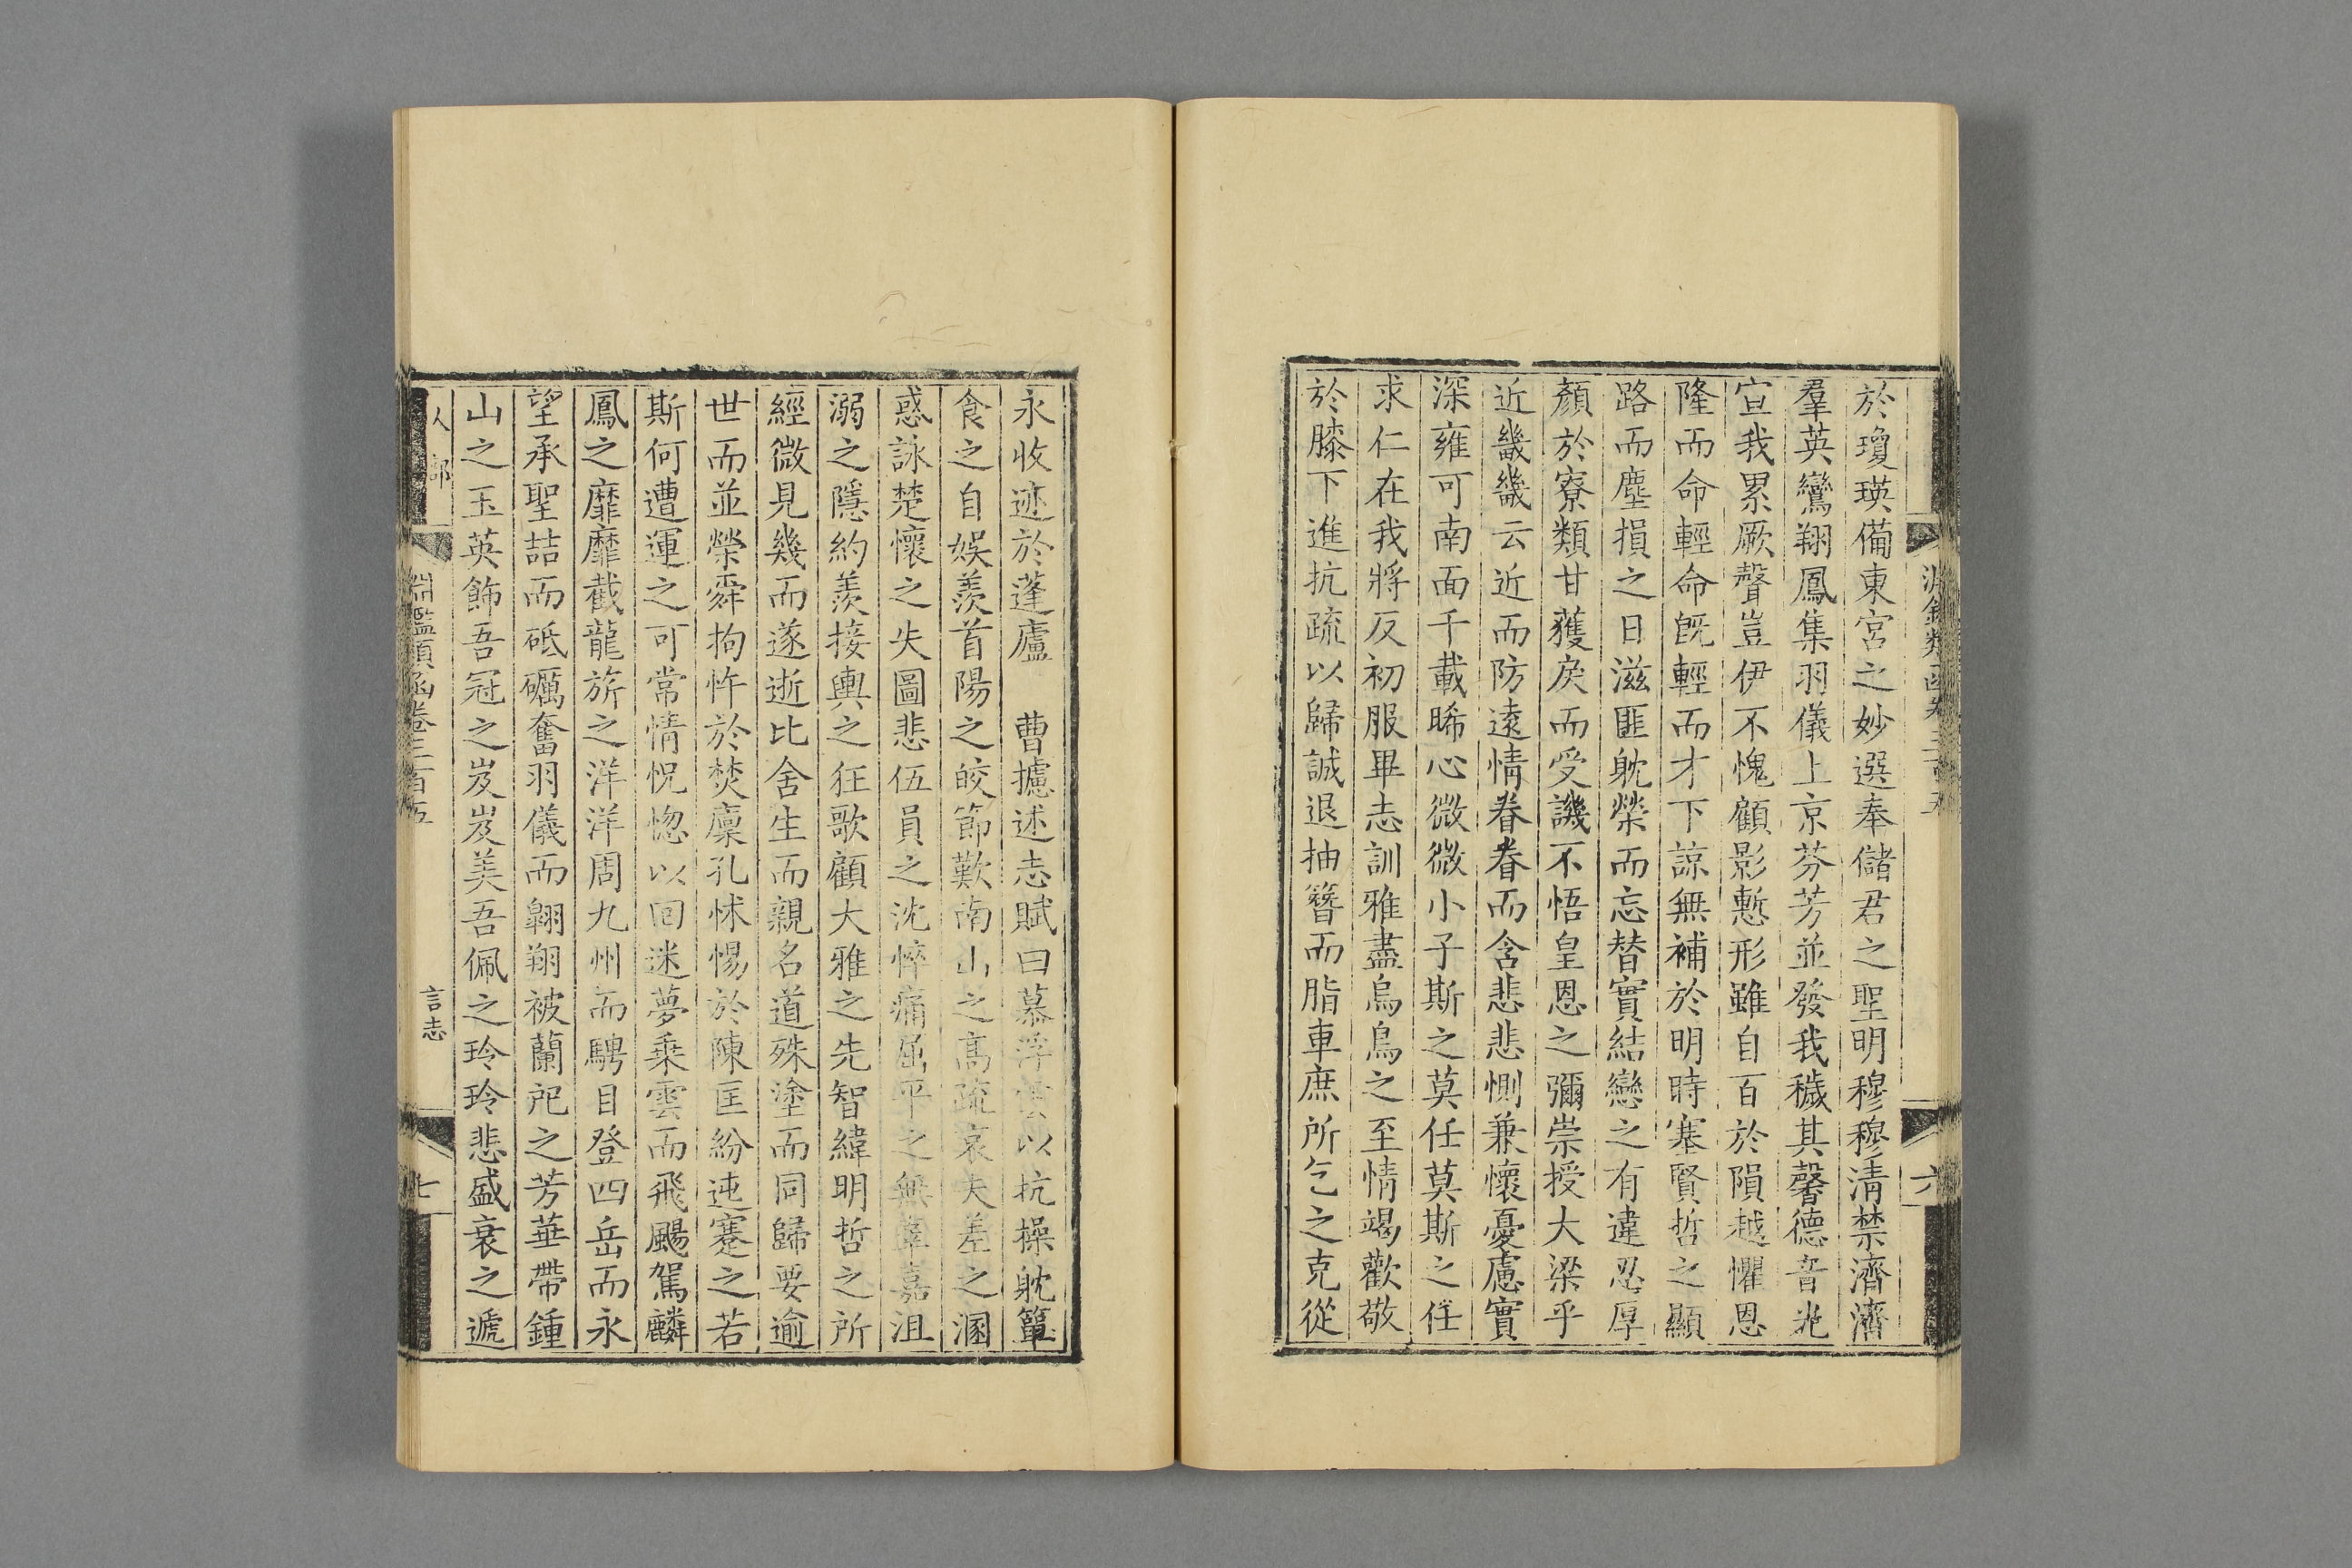 於瓊瑛備東宮之妙選奉儲君之聖明穆穆清禁濟濟
羣英鸞翔鳳集羽儀上京芬芳並發我穢其馨德音光
宣我累厥聲豈伊不愧顧影慙形雖自百於隕越懼恩
隆而命輕命旣輕而才下諒無補於明時塞賢哲之顯
路而塵損之日滋匪躭榮而忘替實結戀之有違忍厚
顏於寮類甘獲戾而受譏不悟皇恩之彌崇授大梁乎
近畿畿云近而防遠情眷眷而含悲悲惻兼懷憂慮實
深雍可南面千載晞心微微小子斯之莫任莫斯之任
求仁在我將反初服畢志訓雅盡烏烏之至情竭歡敬
於膝下進抗疏以歸誠退抽簪而脂車庶所乞之克從
六
永收迹於蓬廬　曹攄述志賦曰慕浮雲以抗操躭簞
食之自娛羨首陽之皎節歎南山之高疏哀夫差之溷
惑詠楚懷之失圖悲伍員之沈悴痛屈平之無辜嘉沮
溺之隱約羨接輿之狂歌顧大雅之先智緯明哲之所
經微見幾而遂逝比舍生而親名道殊塗而同歸要逾
世而並榮舜拘忤於焚廩孔怵惕於陳匡紛迍蹇之若
斯何遭運之可常情怳惚以回迷夢乘雲而飛颺駕麟
鳳之靡靡截龍旂之洋洋周九州而騁目登四岳而永
望承聖喆而砥礪奮羽儀而翱翔被蘭祀之芳華帶鍾
山之玉英飾吾冠之岌岌美吾佩之玲玲悲盛衰之遞
人部
淵鑑類函卷三百五
言志
七